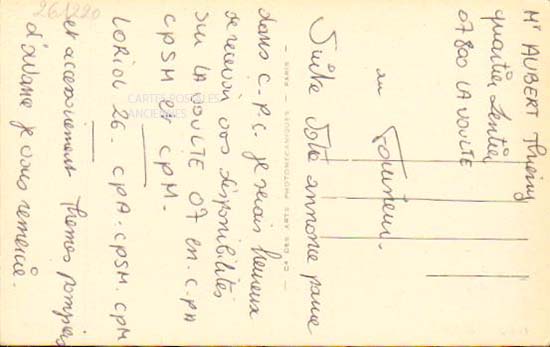 Mr AUBERT Thierry
quartier Lentier
07800 LA VOULTE
au
Collectionneur.
Suite Votre annonce parue
dans C.P.C. je serais heureux
de recevoir vos disponibilités
sur LA VOULTE 07 en C.PA
CPSM et CPM.
LORIOL 26. CPA. CPSM. CPM
et accessoirement themes pompiers
d'avance je vous remercie.
261220
CARTES POSTALES
ANCIENNES